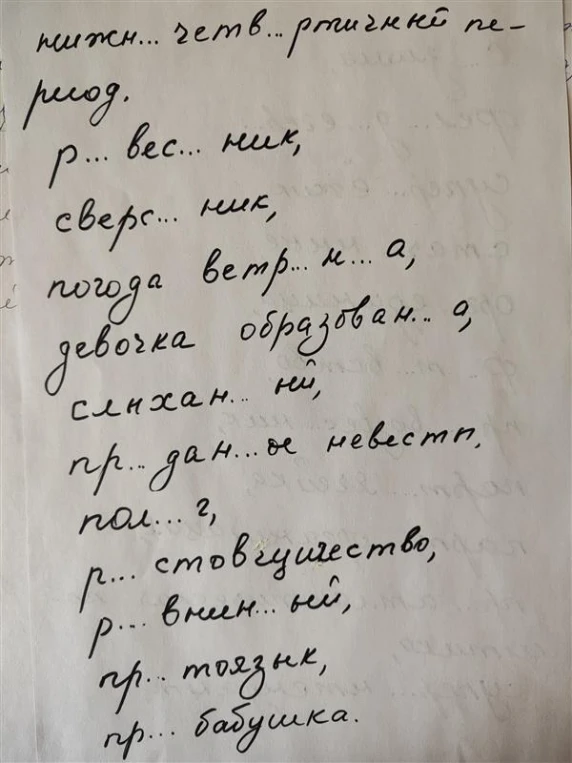 нижн... четв...ртичный пе-
риод.
р... вес... ник,
сверс... ник,
погода ветр... н... а,
девочка образован... а,
слыхан... ый,
пр... дан... ое невесты,
пол... г,
р... стовщичество,
р... внин... ый,
пр.. тоязык,
пр... бабушка.